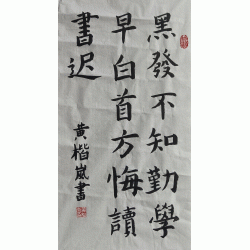 黑發不知勤學
早白首方悔讀
書迟
黄楷嵐書